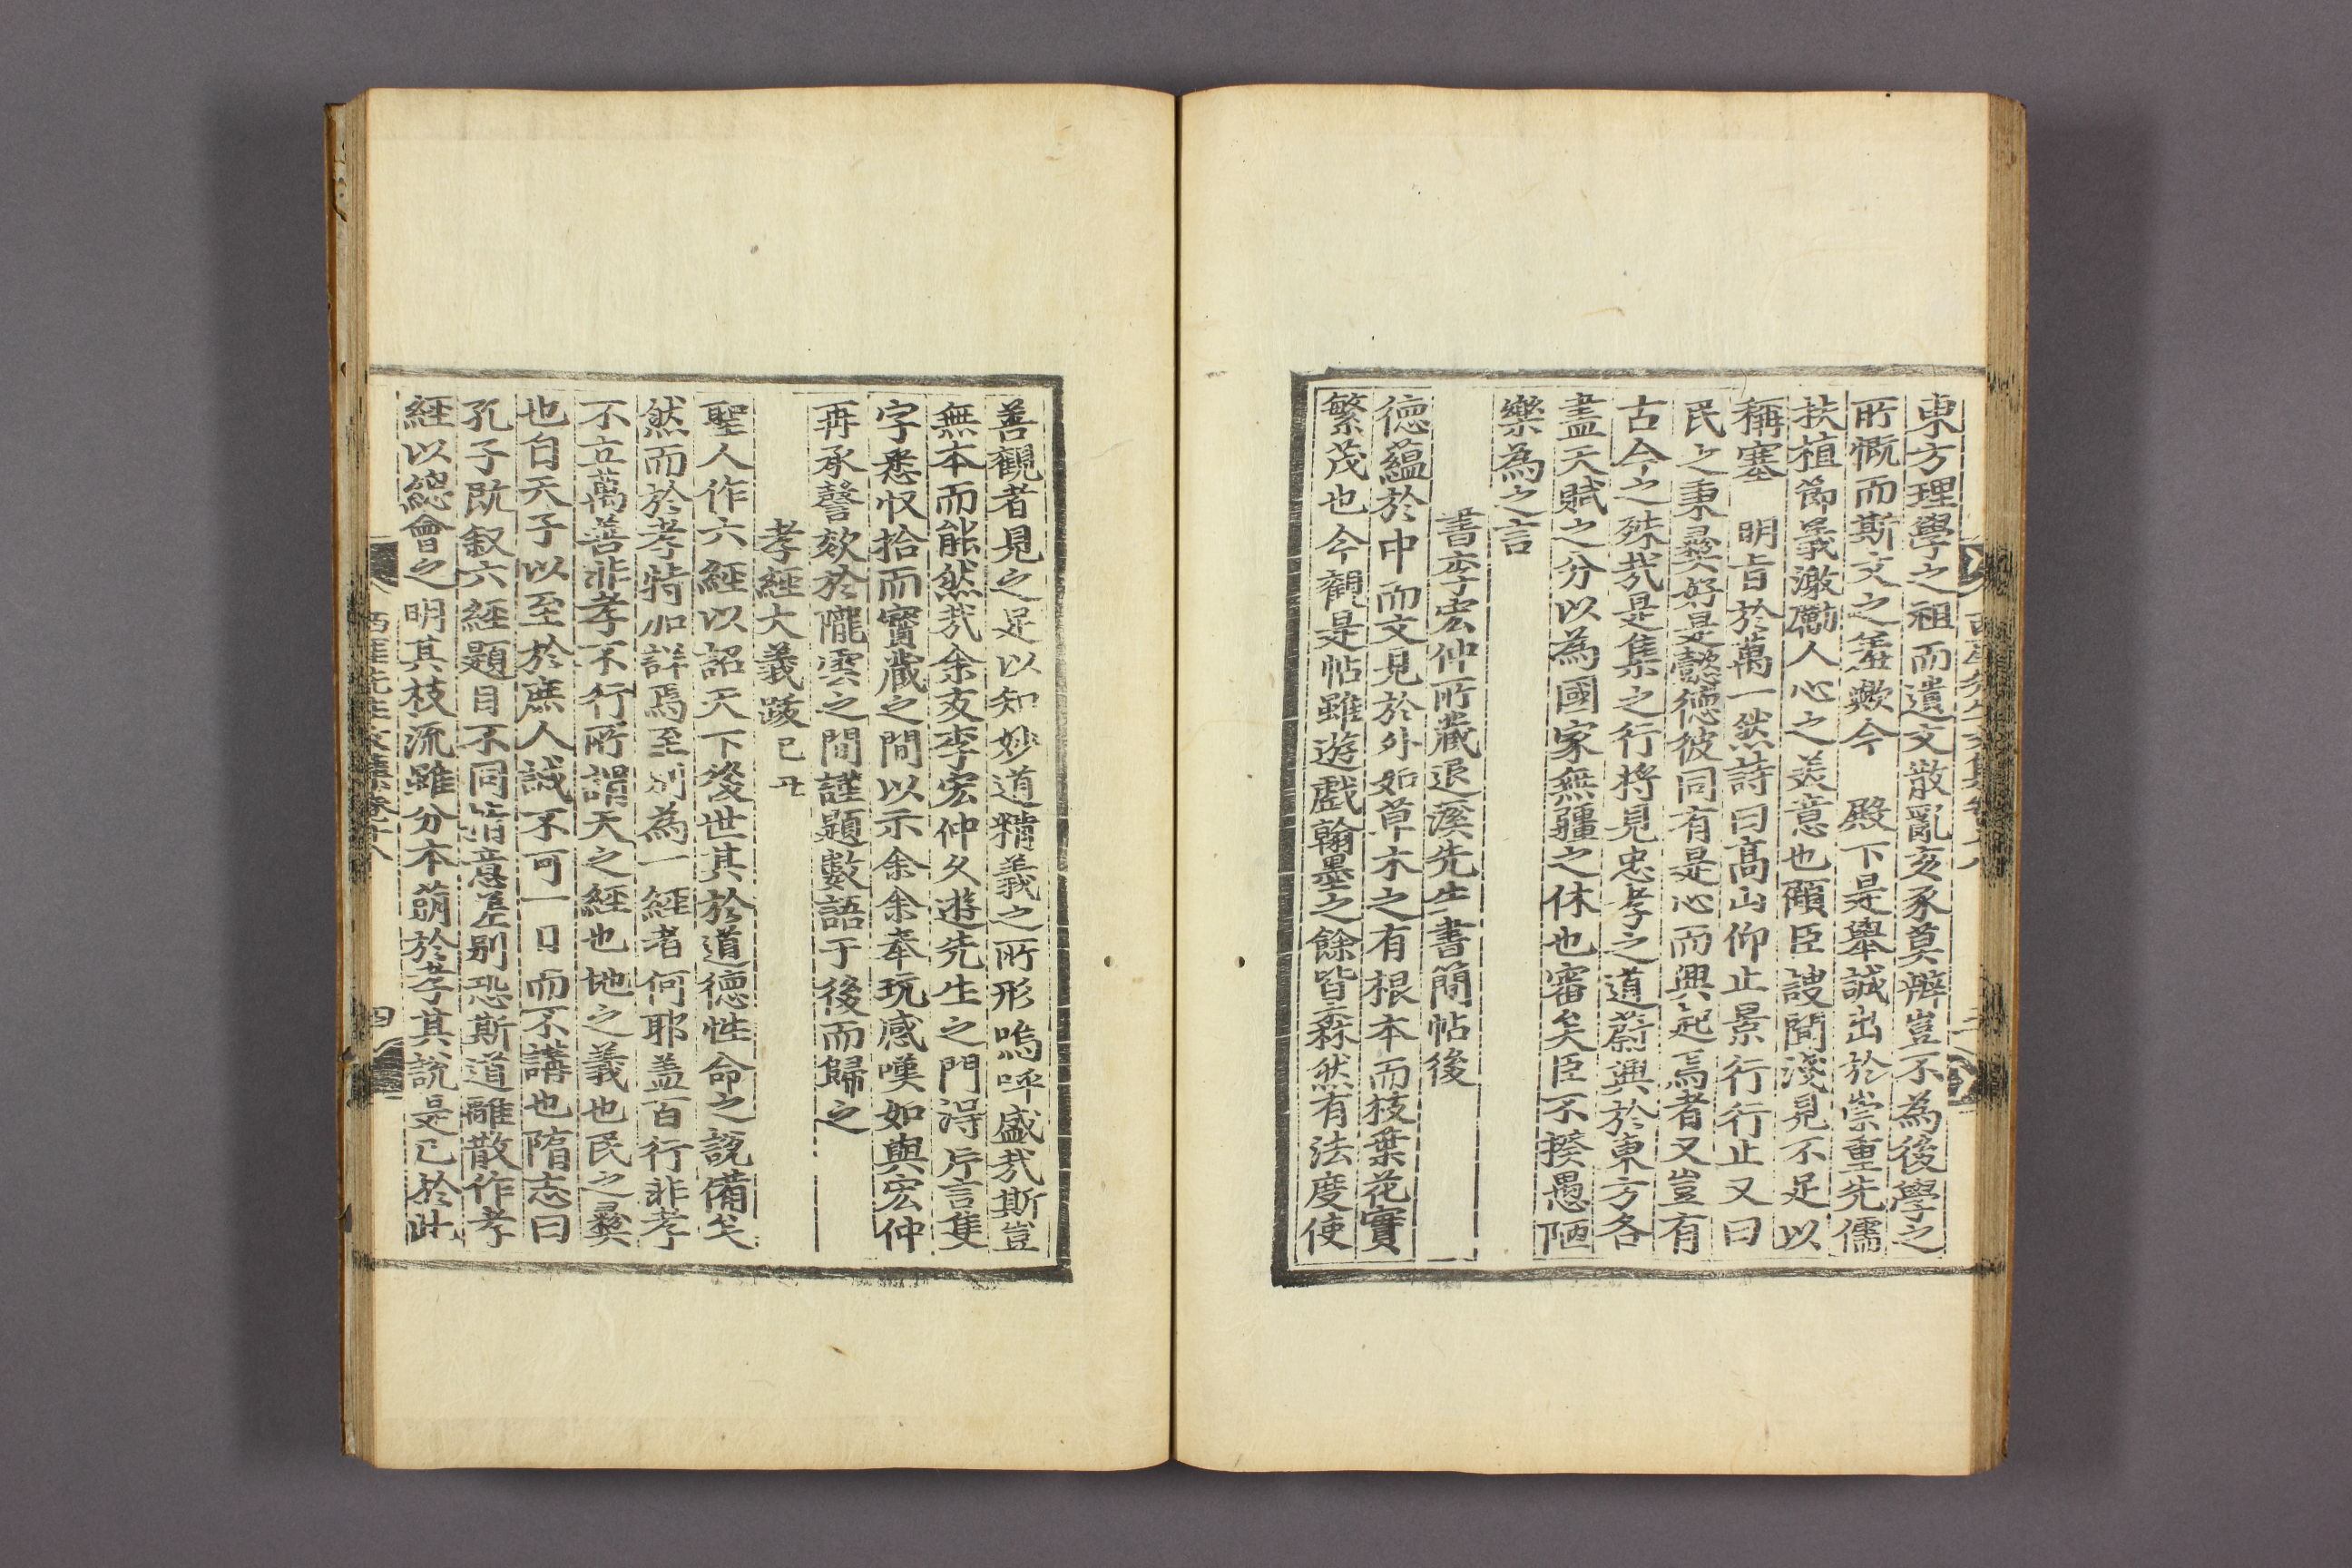 東方理學之祖而遺文散亂亥豕莫辨豈不為後學之
所慨而斯文之羞歟今　殿下是舉誠出於崇重先儒
扶植節義激勵人心之美意也顧臣謏聞淺見不足以
稱塞　明旨於萬一然詩曰高山仰止景行行止又曰
民之秉彛好是懿德彼同有是心而興起焉者又豈有
古今之殊哉是集之行將見忠孝之道蔚興於東方各
盡天賦之分以為國家無疆之休也審矣臣不揆愚陋
樂為之言
書李宏仲所藏退溪先生書簡帖後
德蘊於中而文見於外如草木之有根本而枝葉花實
繁茂也今觀是帖雖遊戱翰墨之餘皆森然有法度使
善觀者見之足以知妙道精義之所形嗚呼盛哉斯豈
無本而能然哉余友李宏仲久遊先生之門得片言隻
字悉收拾而寶藏之間以示余余奉玩感嘆如與宏仲
再承謦欬於隴雲之間謹題數語于後而歸之
孝經大義跋 己丑
聖人作六經以詔天下後世其於道德性命之說備矣
然而於孝特加詳焉至別為一經者何耶盖百行非孝
不立萬善非孝不行所謂天之經也地之義也民之彛
也自天子以至於庶人誠不可一日而不講也隋志曰
孔子旣叙六經題目不同指意差別恐斯道離散作孝
經以總會之明其枝流雖分本萌於孝其說是已於此
西厓先生文集卷十八
四